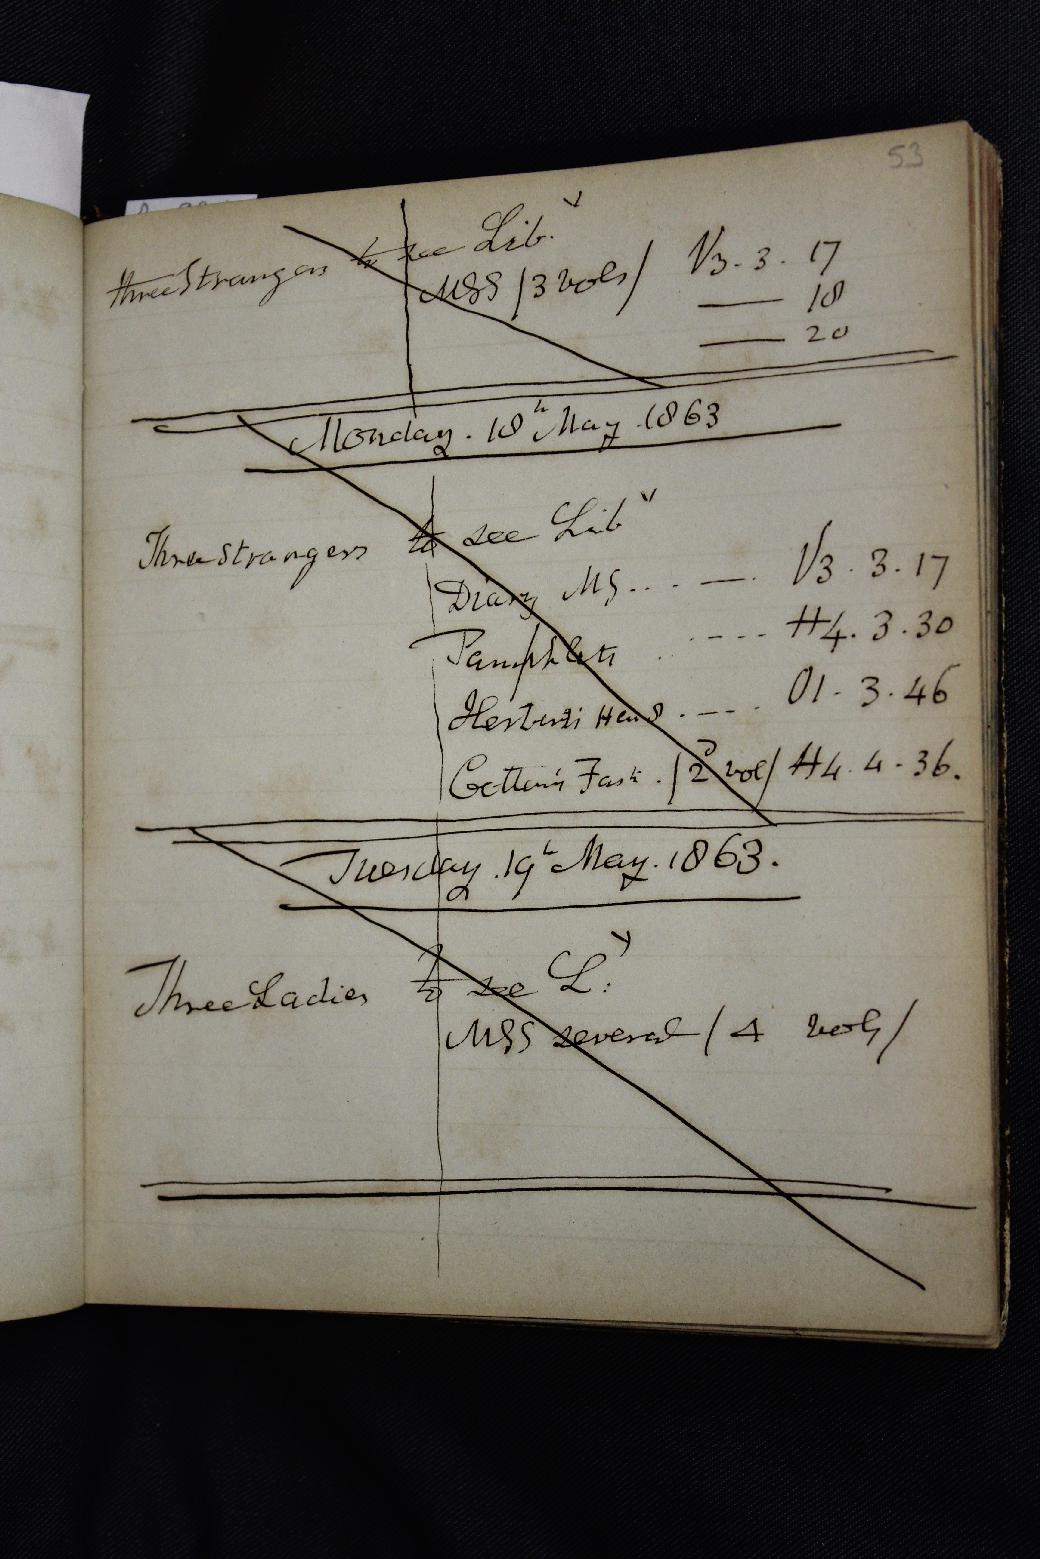 53
Three Strangers to see Lib.y
MSS (3 vols) V3. 3. 17
—— 18
—— 20
Monday. 18h May. 1863
Three Strangers to see Liby
Diary MS... —. V3. 3. 17
Pamphlets .---- H4. 3. 30
Herberti .---. O1. 3. 46
Cotton's . (2 vol) H4. 4. 36.
Tuesday. 19h May. 1863.
Three Ladies to see L:y
MSS several (4 vols)